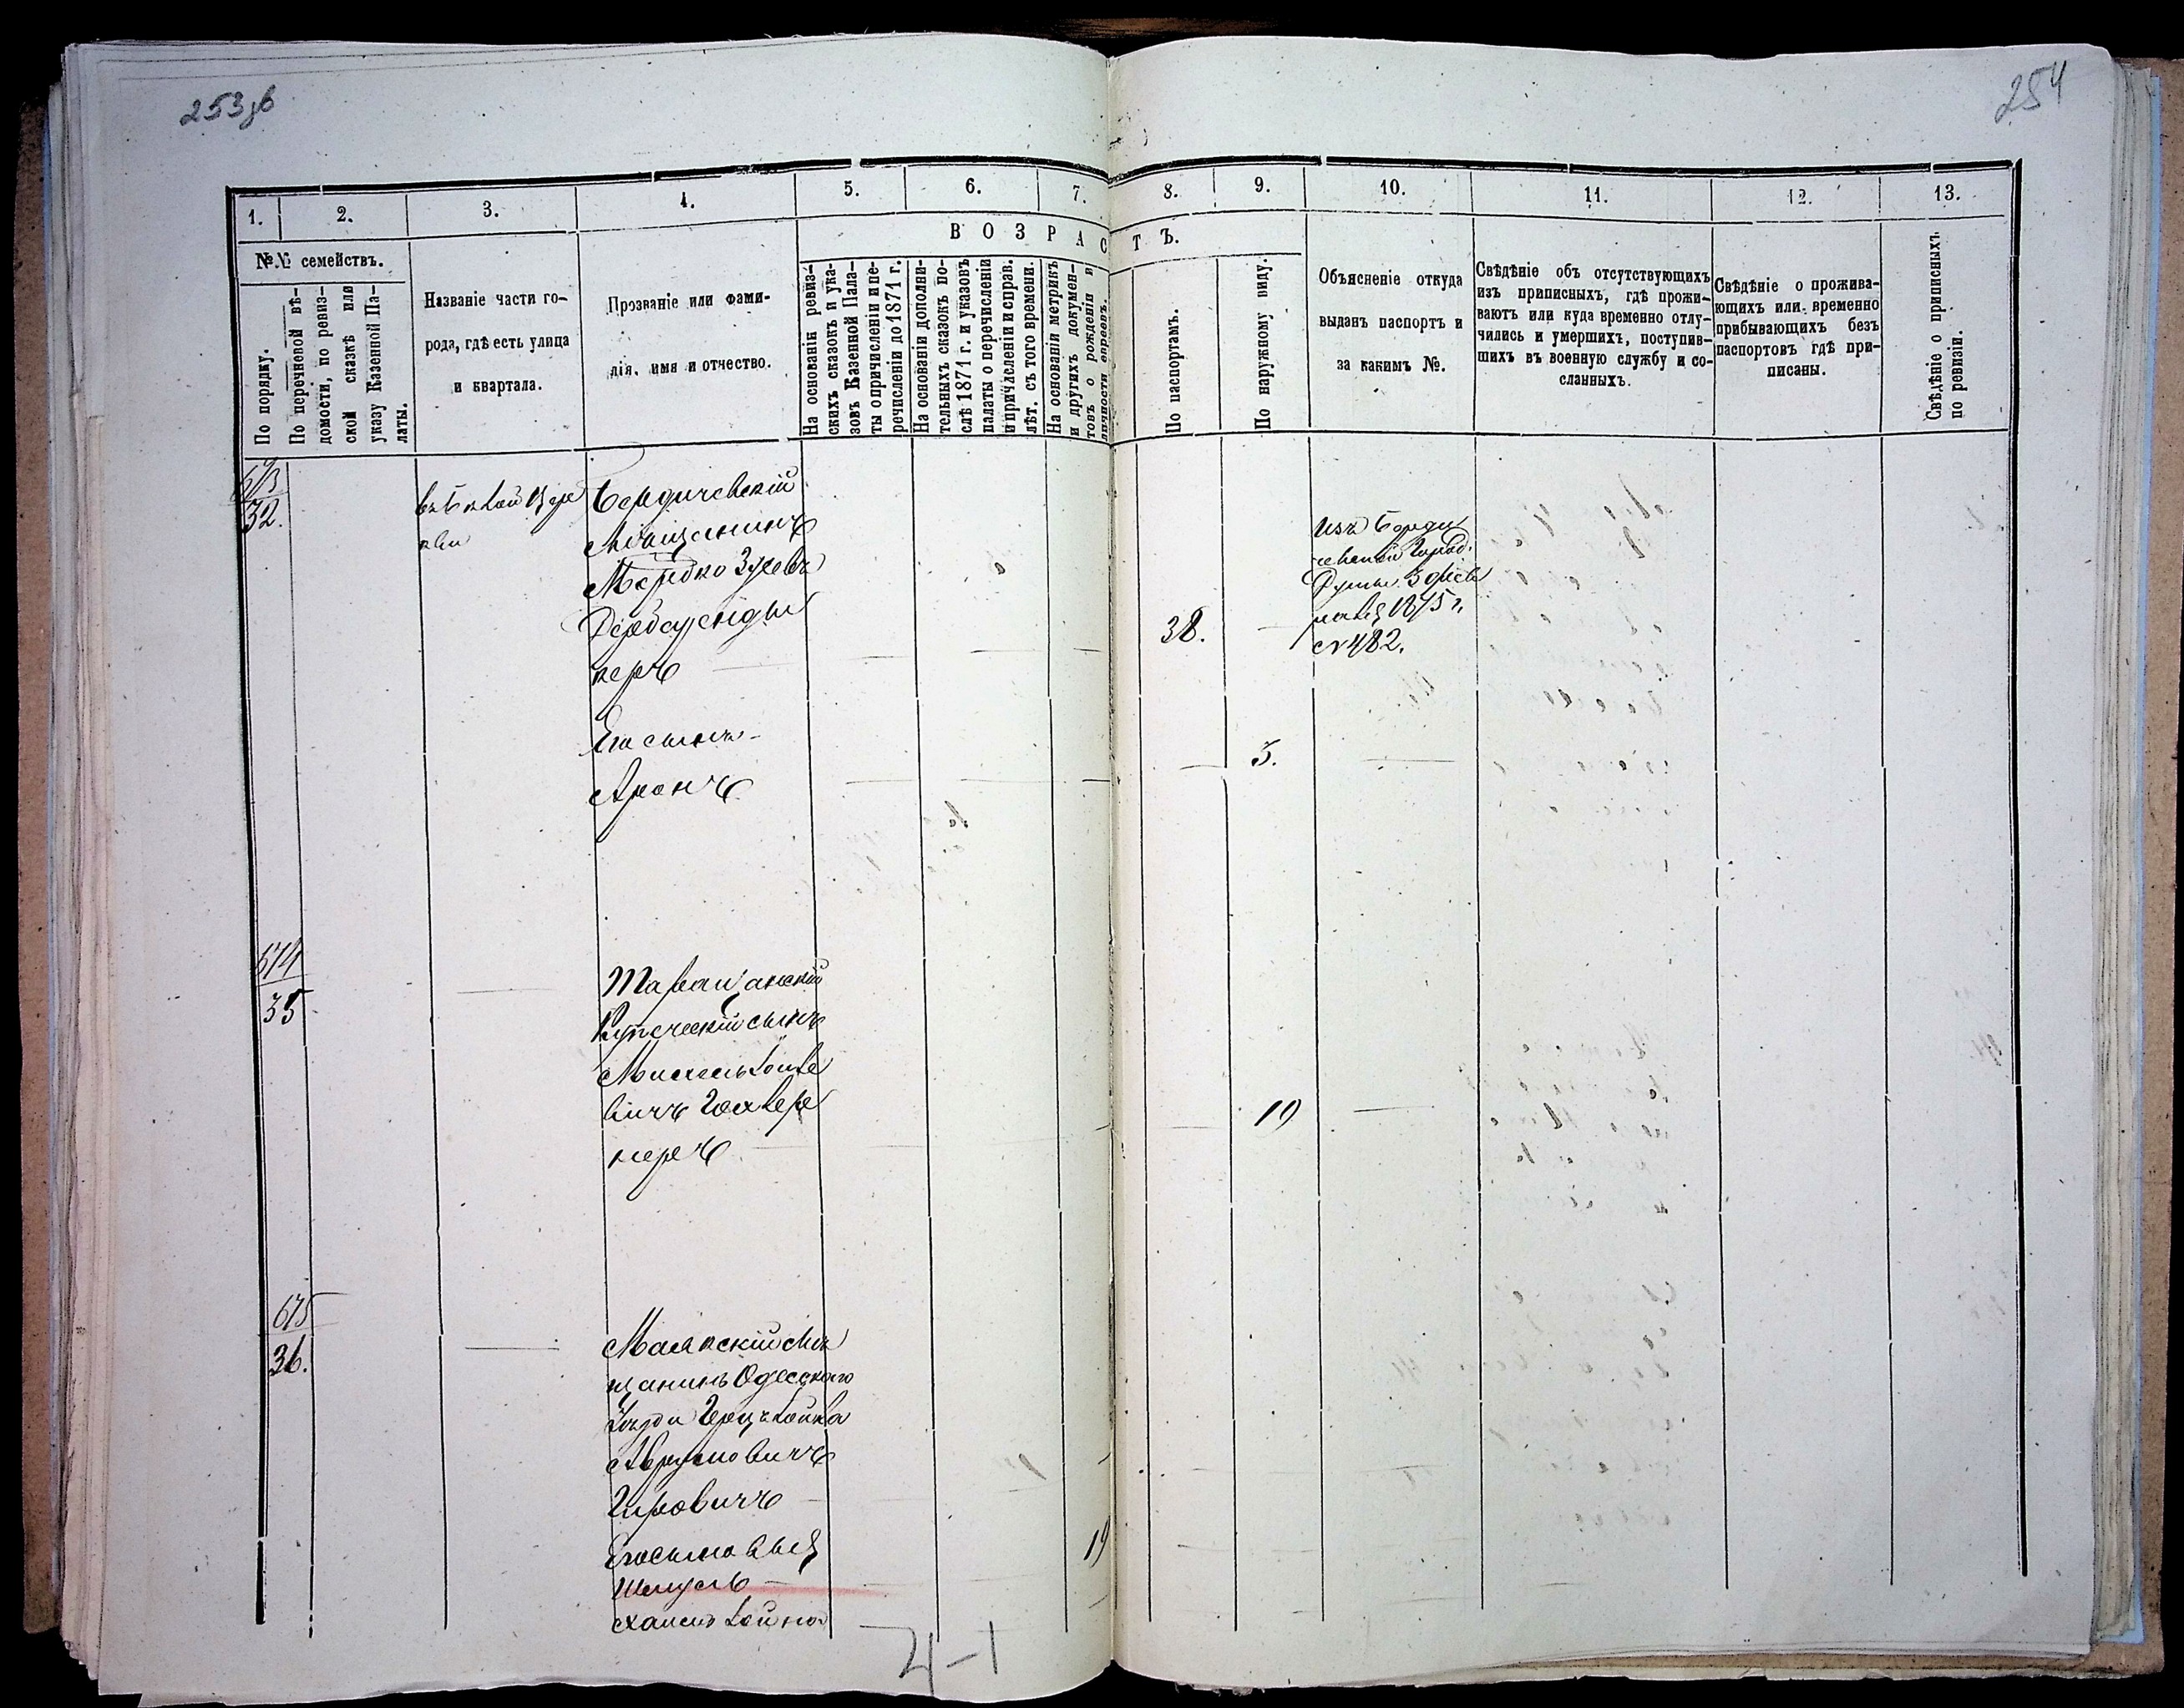 253 об
254
1.
2.
3.
4.
5.
6.
7.
8.
9.
10.
11.
12.
13.
№№ семействъ.
По порядку.
По перечневой вѣ-
домости, по ревиз-
ской сказкѣ или
указу Казенной Па-
латы.
Названіе части го-
рода, гдѣ есть улица
и квартала.
Прозваніе или фами-
лія, имя и отчество.
ВОЗРАСТЪ.
На основаніи ревиз-
скихъ сказокъ и ука-
зовъ Казенной Пала-
ты о причисленіи и пе-
речисленіи до 1871 г.
На основаніи дополни-
тельныхъ сказокъ по-
слѣ 1871 г. и указовъ
палаты о перечисленіи
и причисленіи и справ.
лѣт. съ того времени.
На основаніи метрикъ
и другихъ докумен-
товъ о рожденіи и
личности евреевъ.
По паспортамъ.
По наружному виду.
Объясненіе откуда
выданъ паспортъ и
за какимъ №.
Свѣдѣніе объ отсутствующихъ
изъ приписныхъ, гдѣ прожи-
ваютъ или куда временно отлу-
чились и умершихъ, поступив-
шихъ въ военную службу и со-
сланныхъ.
Свѣдѣніе о прожива-
ющихъ или временно
прибывающихъ безъ
паспортовъ гдѣ при-
писаны.
Свѣдѣніе о приписныхъ
по ревизіи.
673
32.
въ Бѣлой Цер
кви
Бердичевскій
Мѣщанинъ
Мордко Зусевъ
керъ
38.
Изъ Берди
чевской Город.
Думы 3 февр
1875 г.
№ 482.
Его сынъ
Аронъ
5.
674
35
Таращанскій
Купеческій сынъ
вичъ
неръ
19
675
36.
Маякскій Мѣ
щанинъ Одесского
Уѣзда Герцъ Лейба
Абрумовичъ
Гировичъ
Его сыновья
19
Шмуль
Хаимъ Лейба
4-1